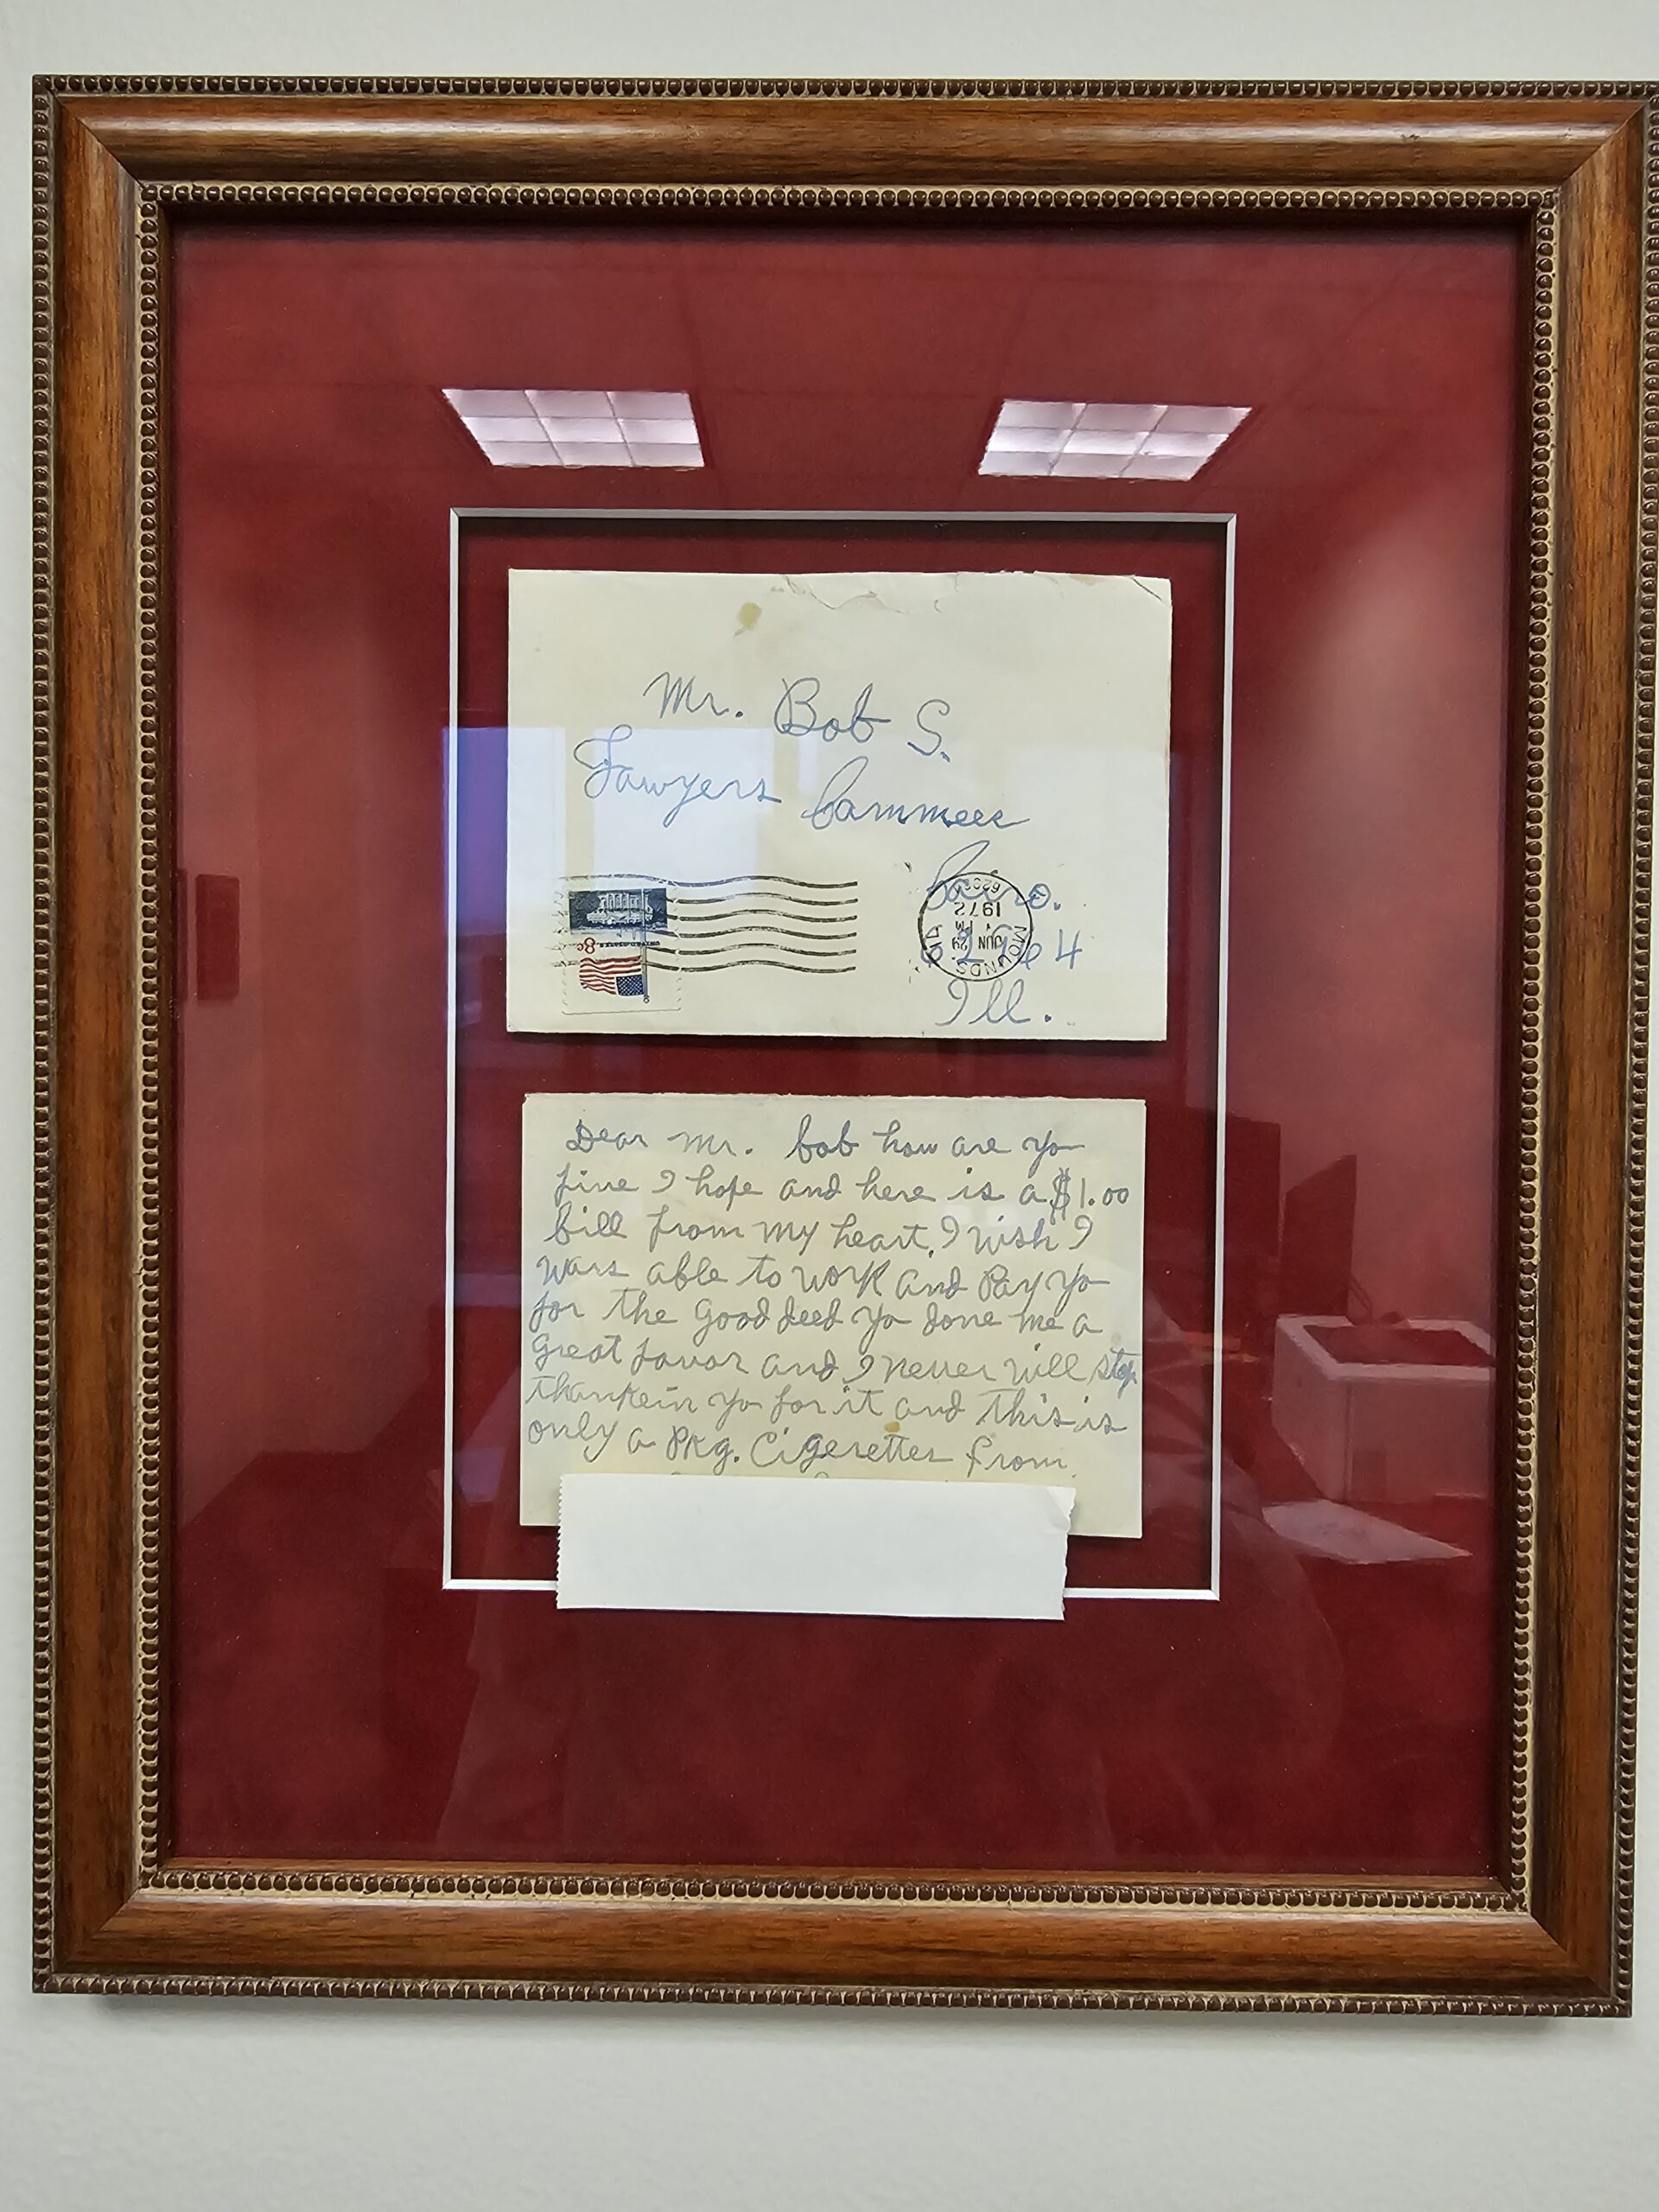 Mr. Bob S.
Lawyers Cammeee
Cairo.
62964
Ill.
MOUNDS
JUN 29
PM
1972
8¢
Dear Mr. bob how are yo
fine I hope and here is a $1.00
bill from my heart, I wish I
Wars able to work and Pay yo
for the Good deed Yo done me a
Great favor and I never will stop
thankein yo for it and this is
only a Pkg. Cigerettes from